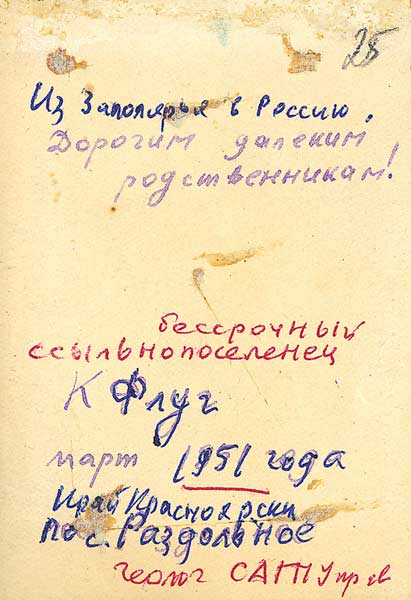 25
Из Заполярья в Россию,
Дорогим далеким
родственникам!
бессрочный
ссыльнопоселенец
К Флуг
март 1951 года
Край Красноярски
пос. Раздольное
геолог САГПУ